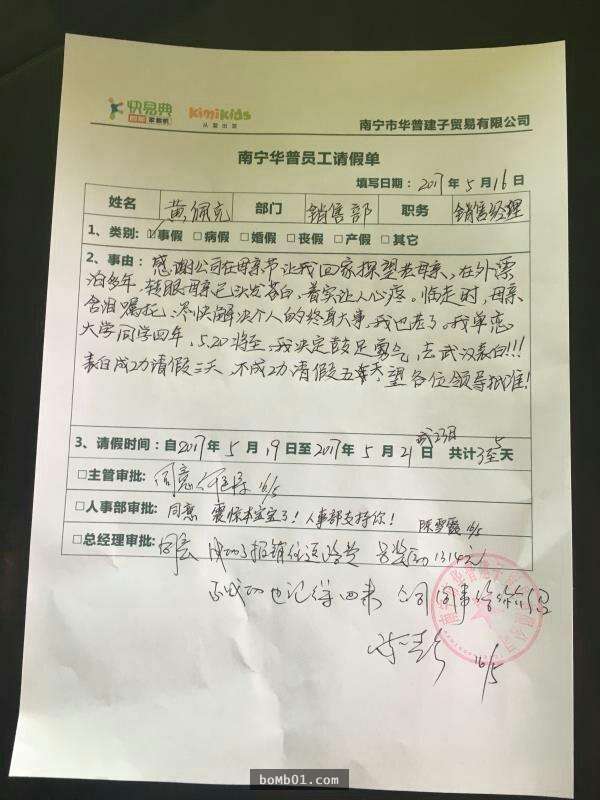 快易典
kimikids
从爱出发
南宁市华普建子贸易有限公司
南宁华普员工请假单
填写日期：2017年5月16日
姓名 黄佩克 部门 销售部 职务 销售经理
1、类别：☑事假 □病假 □婚假 □丧假 □产假 □其它
2、事由：感谢公司在母亲节让我回家探望老母亲，在外漂
泊多年，转眼母亲已头发苍白，着实让人心疼。临走时，母亲
含泪嘱托，尽快解决个人的终身大事，我也老了。我单恋
大学同学四年，5.20将至，我决定鼓足勇气，去武汉表白!!!
表白成功请假三天，不成功请假五天，望各位领导批准！
3、请假时间：自2017年5月19日至2017年5月21日 或23日 共计3至5天
□主管审批：同意 16/5
□人事部审批：同意 震惊本宝宝了！人事部支持你！ 陈雪霞 16/5
□总经理审批：同意 成功了报销往返路费 另奖励1314元
不成功也记得回来 公司同事给你介绍
16/5
bomb01.com